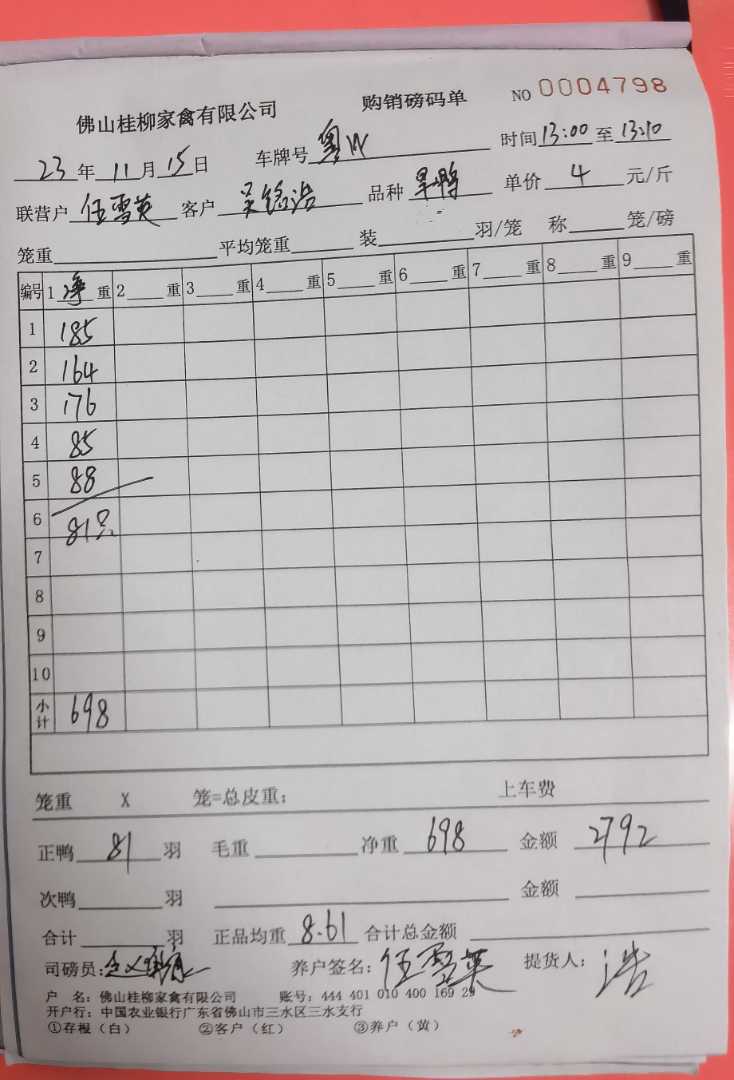 佛山桂柳家禽有限公司 购销磅码单 NO 0004798
23年11月15日 车牌号粤W 时间13:00至13:10
联营户 伍雪英 客户 吴铭浩 品种 旱鸭 单价 4 元/斤
笼重 平均笼重 装 羽/笼 称 笼/磅
编号 1净重 2重 3重 4重 5重 6重 7重 8重 9重
1 185
2 164
3 176
4 85
5 88
6 81只
7
8
9
10
小计 698
笼重 X 笼=总皮重: 上车费
正鸭 81 羽 毛重 净重 698 金额 2792
次鸭 羽 金额
合计 羽 正品均重 8.61 合计总金额
司磅员: 养户签名: 伍雪英 提货人: 浩
户 名: 佛山桂柳家禽有限公司 账号: 444 401 010 400 169 29
开户行: 中国农业银行广东省佛山市三水区三水支行
①存根(白) ②客户(红) ③养户(黄)